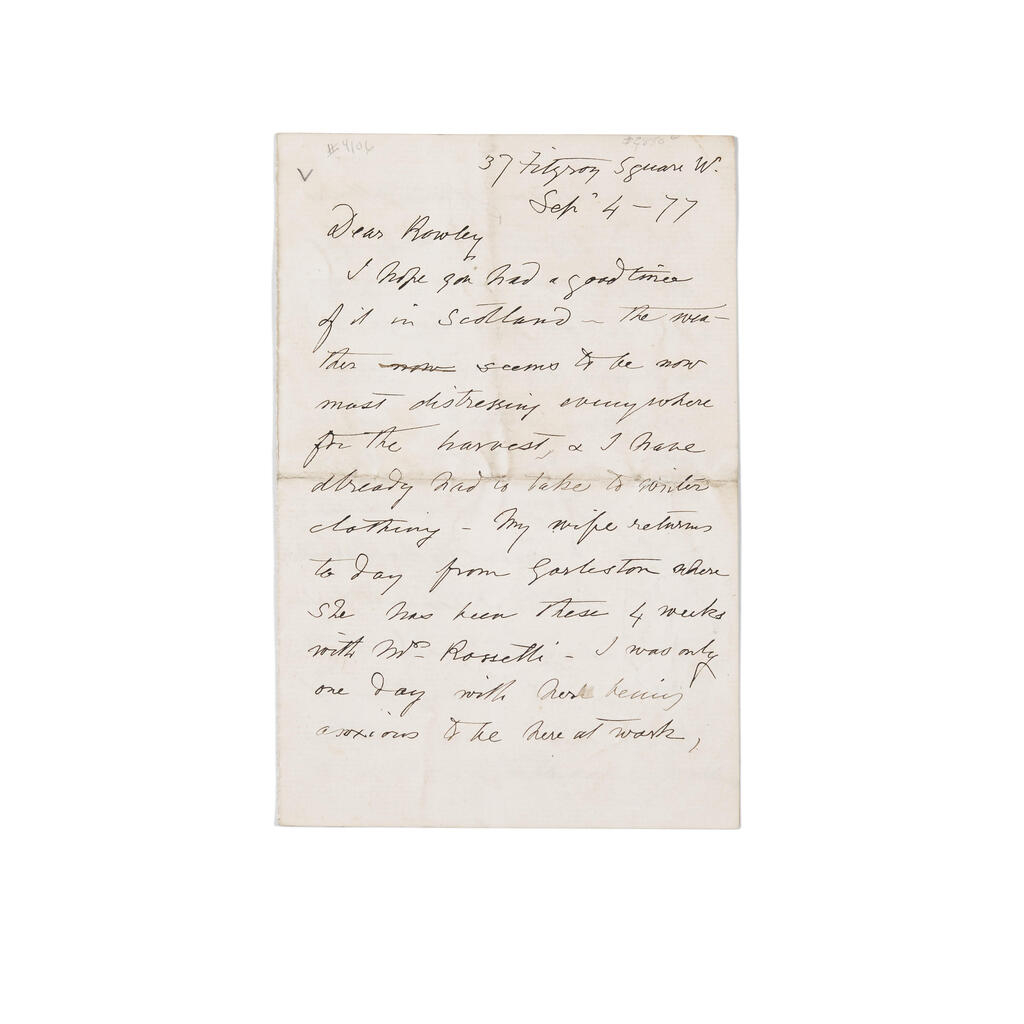 #4106
37 Fitzroy Square W.
Sept 4 – 77
Dear Rowley
I hope you had a good time
of it in Scotland – the wea–
ther now seems to be now
most distressing everywhere
for the harvest, & I have
already had to take to winter
clothing – My wife returns
to day from Gorleston where
she has been these 4 weeks
with Mrs Rossetti – I was only
one day with her being
anxious to be here at work,